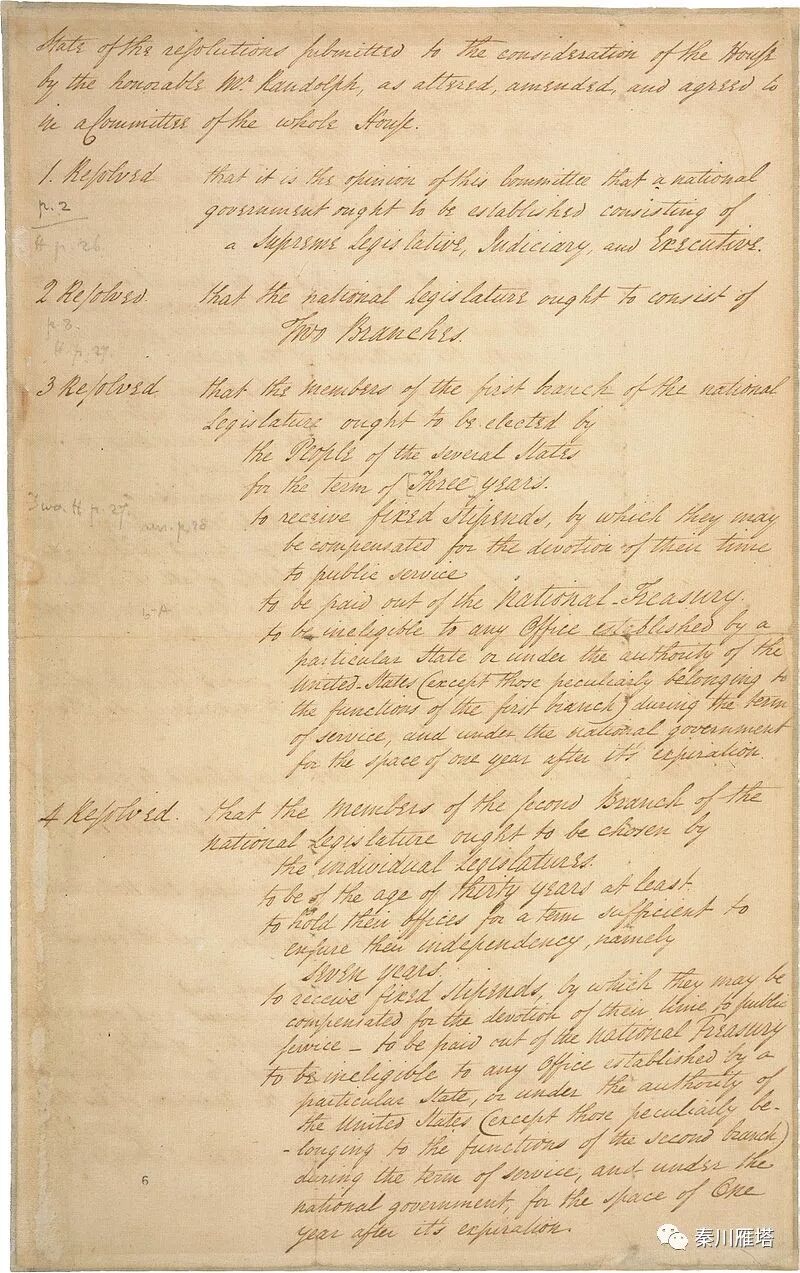 State of the resolutions submitted to the consideration of the House
by the honorable Mr. Randolph, as altered, amended, and agreed to
in a Committee of the whole House.
1. Resolved that it is the opinion of this Committee that a national
p. 2 government ought to be established consisting of
H p. 26 a Supreme Legislative, Judiciary, and Executive.
2 Resolved. that the national Legislature ought to consist of
p. 8. Two Branches.
H. p. 27.
3 Resolved that the members of the first branch of the national
Legislature ought to be elected by
the People of the several States
for the term of Three years.
H p. 27. p. 28 to receive fixed Stipends, by which they may
be compensated for the devotion of their time
to public service
to be paid out of the National-Treasury.
to be ineligible to any Office established by a
particular State or under the authority of the
United-States (except those peculiarly belonging to
the functions of the first branch) during the term
of service, and under the national government
for the space of one year after it's expiration.
4 Resolved. that the members of the second Branch of the
national Legislature ought to be chosen by
the individual Legislatures.
to be of the age of thirty years at least.
to hold their offices for a term sufficient to
ensure their independency, namely
seven years.
to receive fixed Stipends, by which they may be
compensated for the devotion of their time to public
service – to be paid out of the National Treasury
to be ineligible to any Office established by a
particular State, or under the authority of
the United States (except those peculiarly be-
-longing to the functions of the second branch)
during the term of service, and under the
national government, for the space of One
year after it's expiration.
6
秦川雁塔